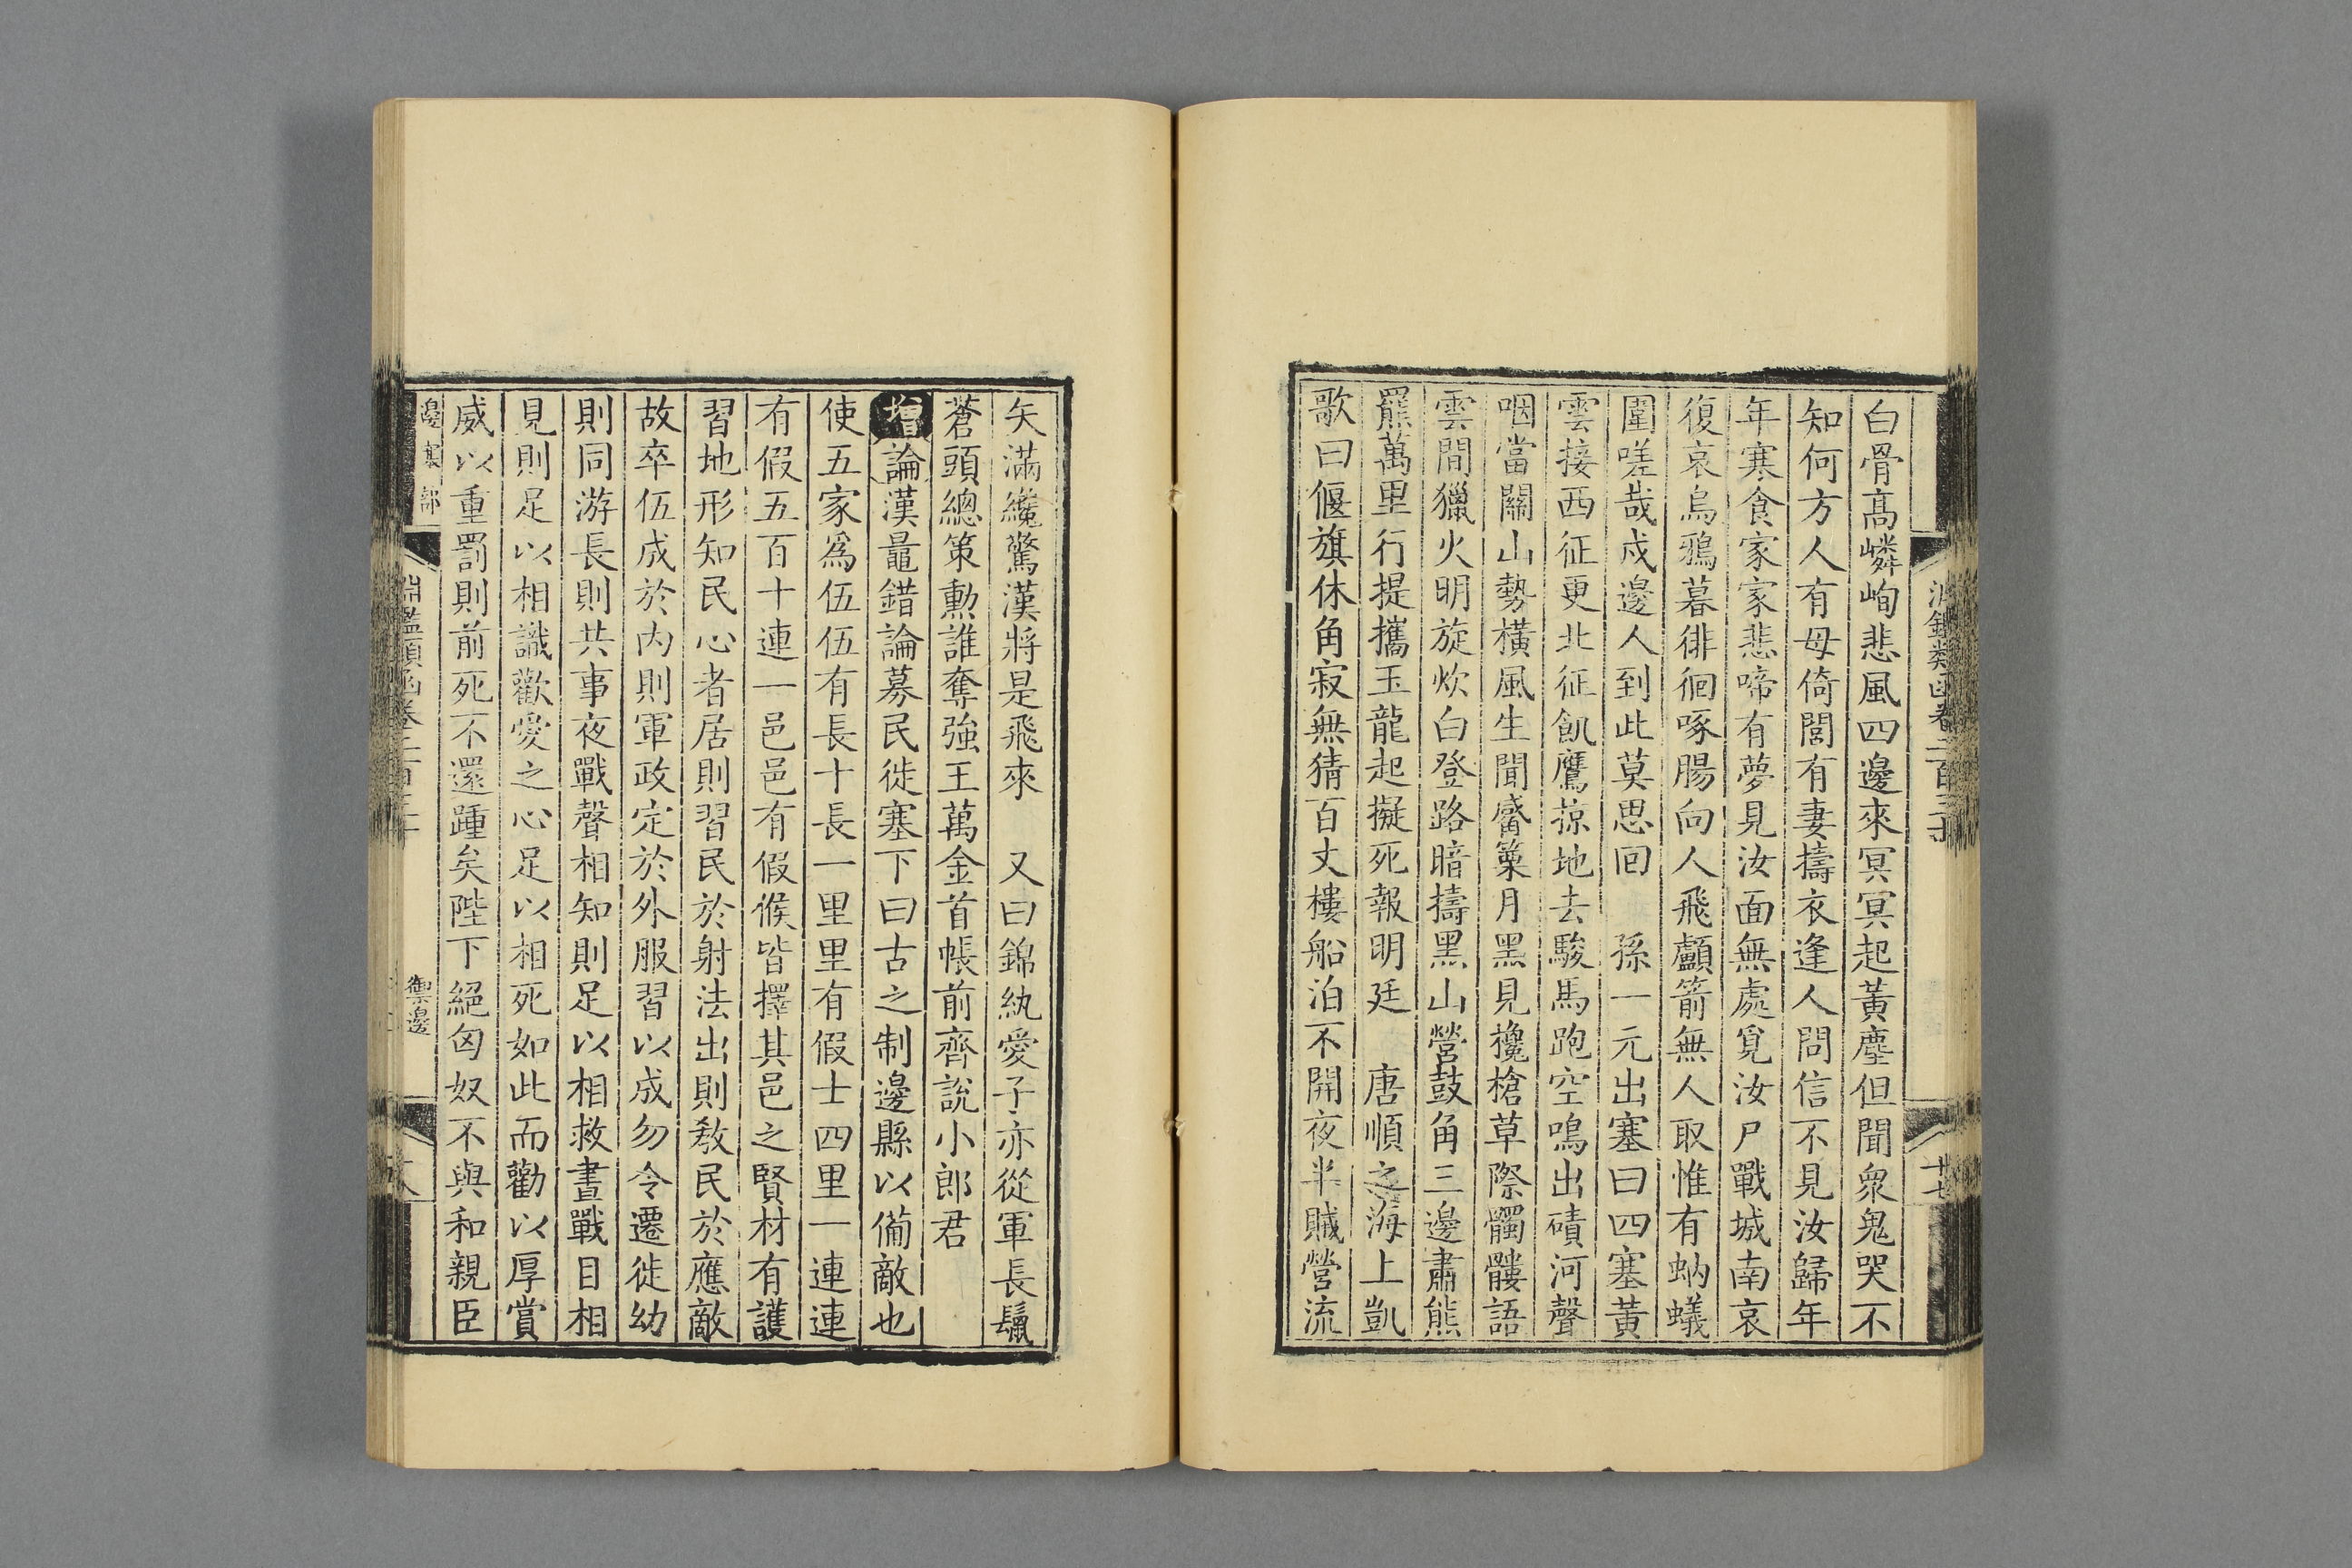 白骨髙嶙峋悲風四邊來冥冥起黃塵但聞衆鬼哭不
知何方人有母倚閭有妻擣衣逢人問信不見汝歸年
年寒食家家悲啼有夢見汝面無處覓汝尸戰城南哀
復哀烏鴉暮徘徊啄腸向人飛顱箭無人取惟有蚋蟻
圍嗟哉戍邊人到此莫思回　孫一元出塞曰四塞黃
雲接西征更北征飢鷹掠地去駿馬跑空鳴出磧河聲
咽當關山勢橫風生聞觱篥月黑見攙槍草際髑髏語
雲間獵火明旋炊白登路暗擣黑山營鼓角三邊肅熊
羆萬里行提攜玉龍起擬死報明廷　唐順之海上凱
歌曰偃旗休角寂無猜百丈樓船泊不開夜半賊營流
矢滿纔驚漢將是飛來　又曰錦紈愛子亦從軍長鬣
蒼頭總策勳誰奪強王萬金首帳前齊說小郎君
增論漢鼂錯論募民徙塞下曰古之制邊縣以備敵也
使五家爲伍伍有長十長一里里有假士四里一連連
有假五百十連一邑邑有假候皆擇其邑之賢材有護
習地形知民心者居則習民於射法出則敎民於應敵
故卒伍成於内則軍政定於外服習以成勿令遷徙幼
則同游長則共事夜戰聲相知則足以相救晝戰目相
見則足以相識歡愛之心足以相死如此而勸以厚賞
威以重罰則前死不還踵矣陛下絕匈奴不與和親臣
邊塞部
淵鑑類函卷二百三十
禦邊